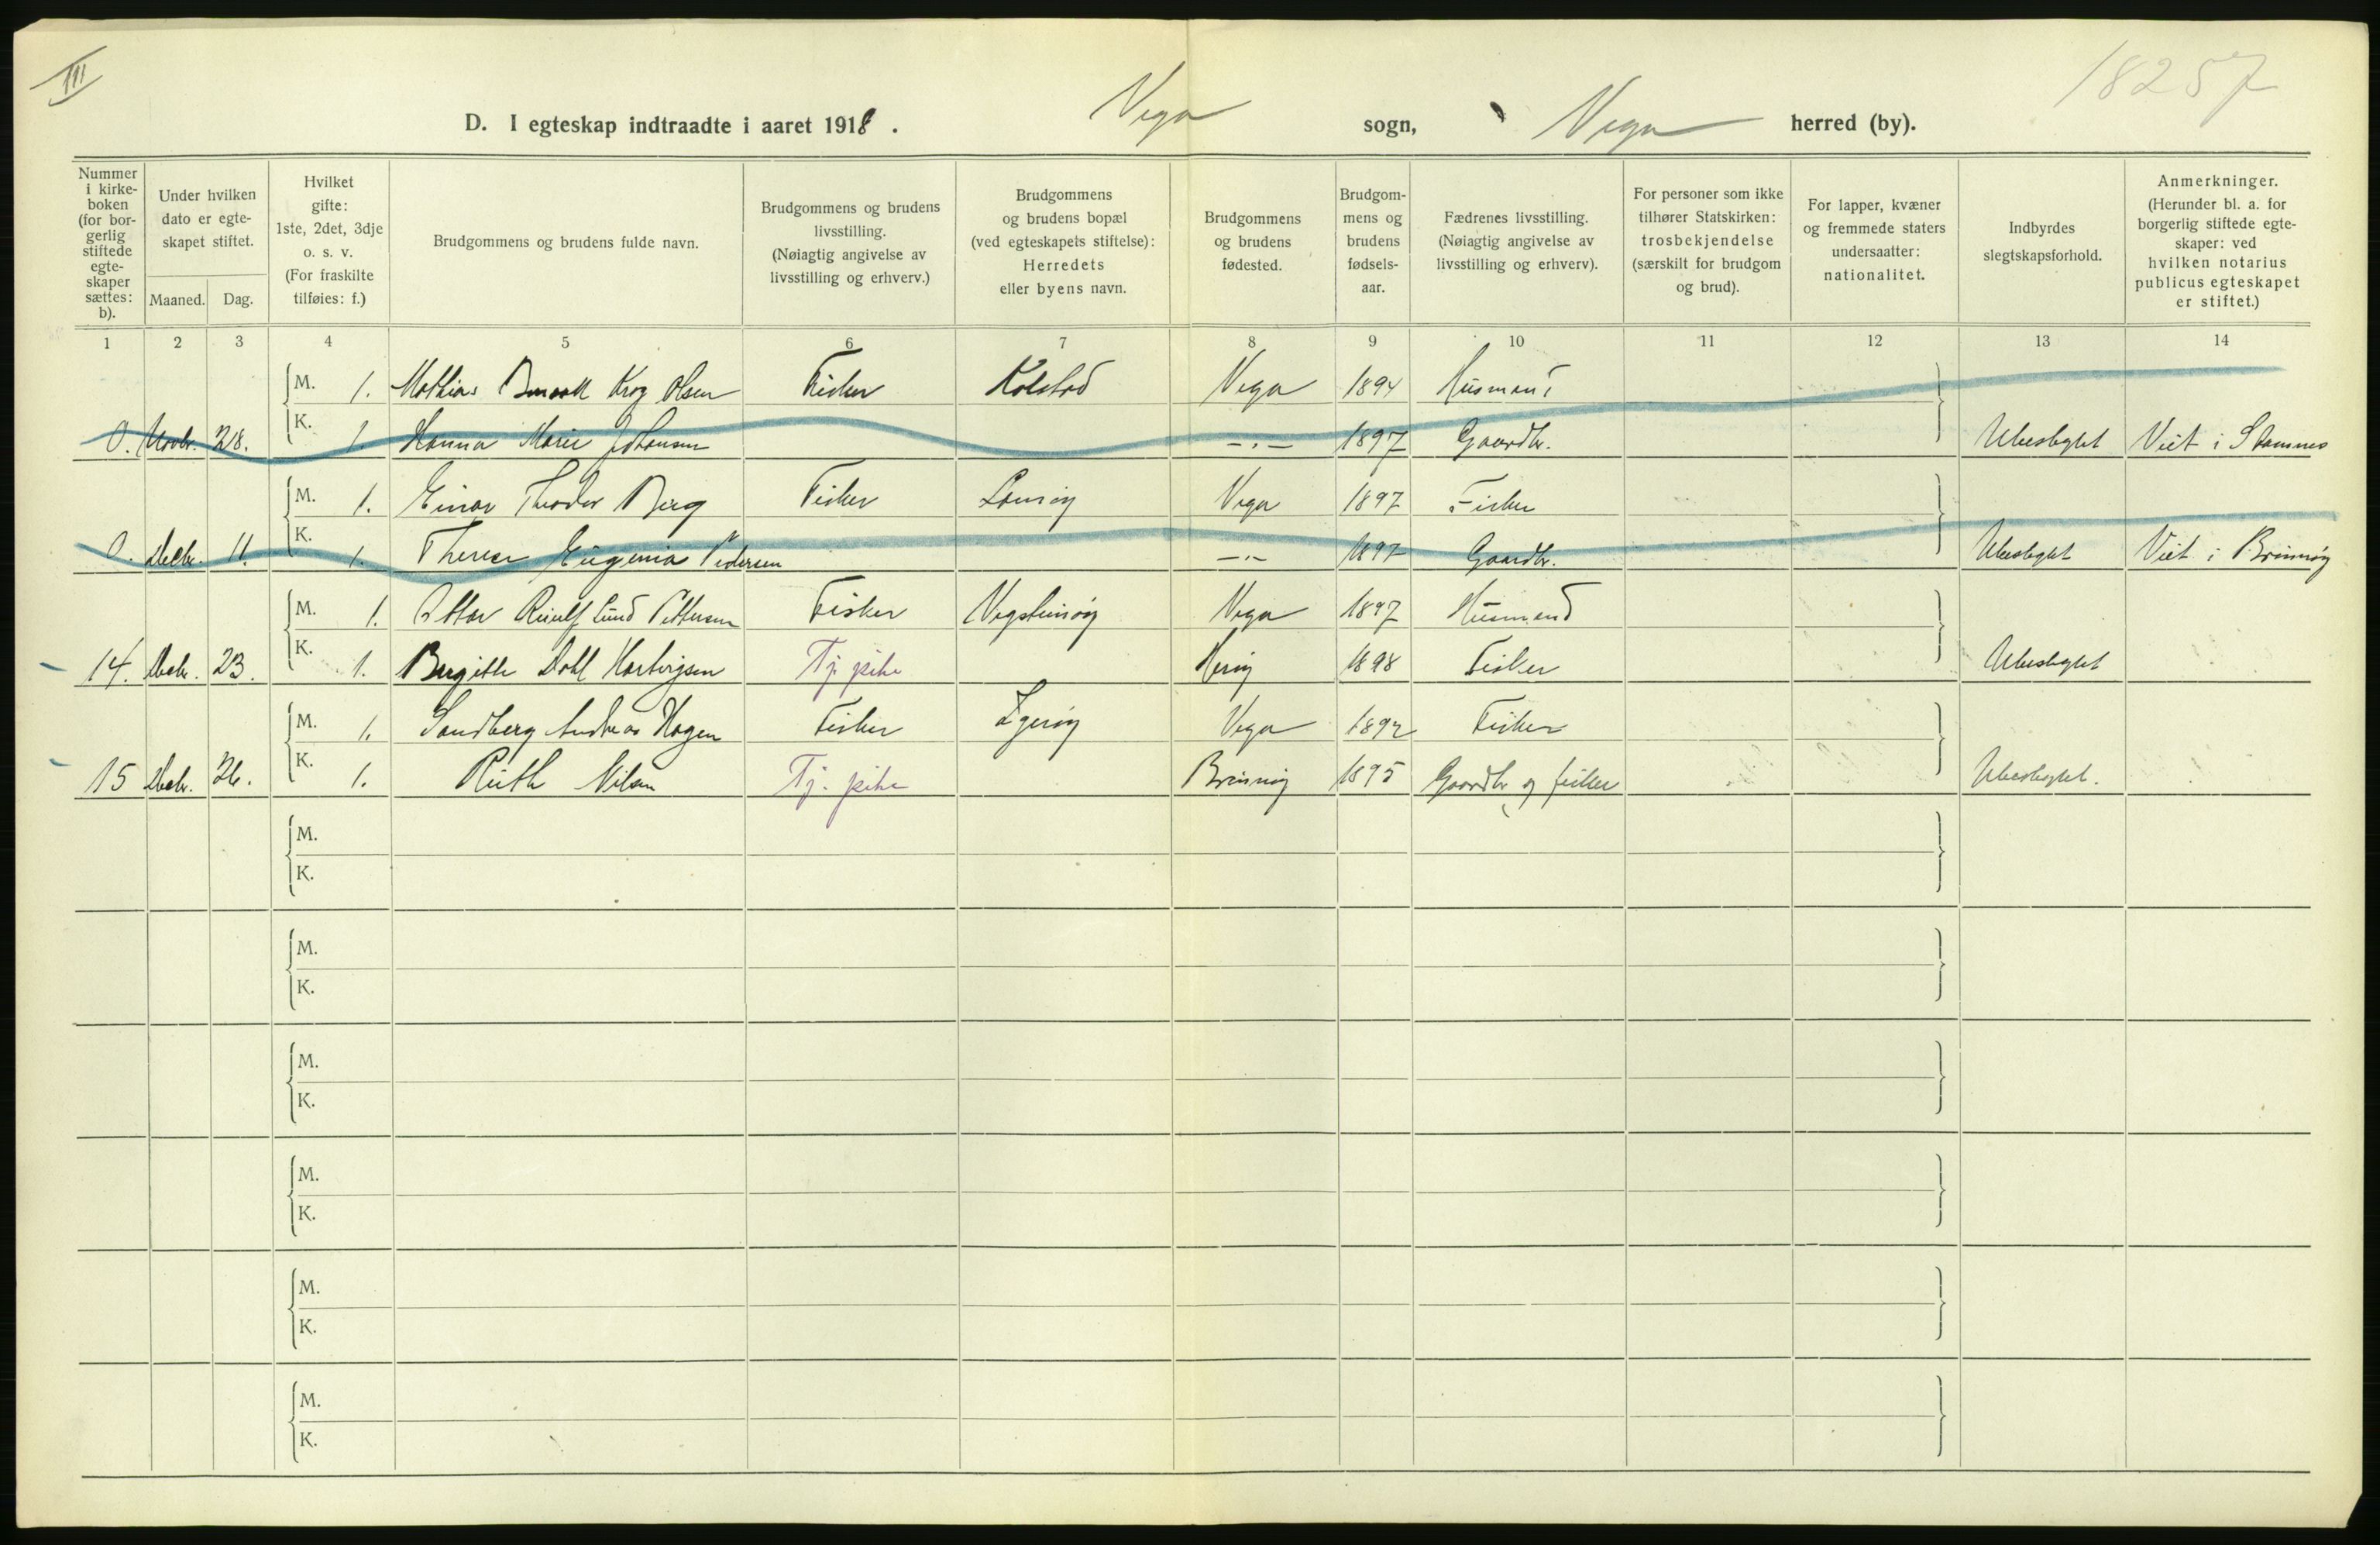 III
18257
D. I egteskap indtraadte i aaret 1918. Vega sogn, Vega herred (by).
Nummer i kirke-boken (for bor-gerlig stiftede egte-skaper sættes: b).
Under hvilken dato er egte-skapet stiftet.
Maaned. Dag.
Hvilket gifte: 1ste, 2det, 3dje o. s. v. (For fraskilte tilføies: f.)
Brudgommens og brudens fulde navn.
Brudgommens og brudens livsstilling. (Nøiagtig angivelse av livsstilling og erhverv.)
Brudgommens og brudens bopæl (ved egteskapets stiftelse): Herredets eller byens navn.
Brudgommens og brudens fødested.
Brudgom-mens og brudens fødsels-aar.
Fædrenes livsstilling. (Nøiagtig angivelse av livsstilling og erhverv).
For personer som ikke tilhører Statskirken: trosbekjendelse (særskilt for brudgom og brud).
For lapper, kvæner og fremmede staters undersaatter: nationalitet.
Indbyrdes slegtskapsforhold.
Anmerkninger. (Herunder bl. a. for borgerlig stiftede egte-skaper: ved hvilken notarius publicus egteskapet er stiftet.)
1 2 3 4 5 6 7 8 9 10 11 12 13 14
M. 1. Mathias Krog Olsen Fisker Kolstad Vega 1894 Husmand
0. Novbr. 28. K. 1. Hanna Marie Johansen -"- 1897 Gaardbr. Ubeslegtet Viet i Stamnes
M. 1. Einar Theodor Berg Fisker Vega 1897 Fisker
0. Decbr. 11. K. 1. Therese Eugenia Pedersen -"- 1897 Gaardbr. Ubeslegtet Viet i Brønnøy
M. 1. Ottar Lund Pettersen Fisker Vegsteinøy Vega 1897 Husmand
14. Decbr. 23. K. 1. Bergitte Dahl Hartvigsen Tj. pike Herøy 1898 Fisker Ubeslegtet
M. 1. Sandberg Andreas Hagen Fisker Vega 1892 Fisker
15 Decbr. 26. K. 1. Ruth Nilsen Tj. pike Brønnøy 1895 Gaardbr og fisker Ubeslegtet.
M.
K.
M.
K.
M.
K.
M.
K.
M.
K.
M.
K.